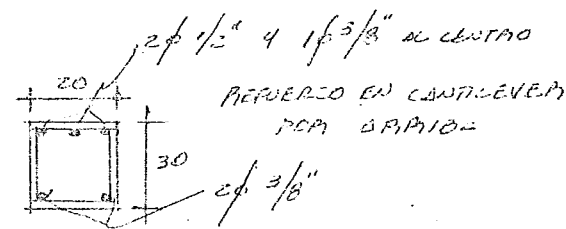 2ϕ 1/2" Y 1ϕ 5/8" AL CENTRO
REFUERZO EN CANTILEVER
POR ARRIBA
20
30
2ϕ 3/8"